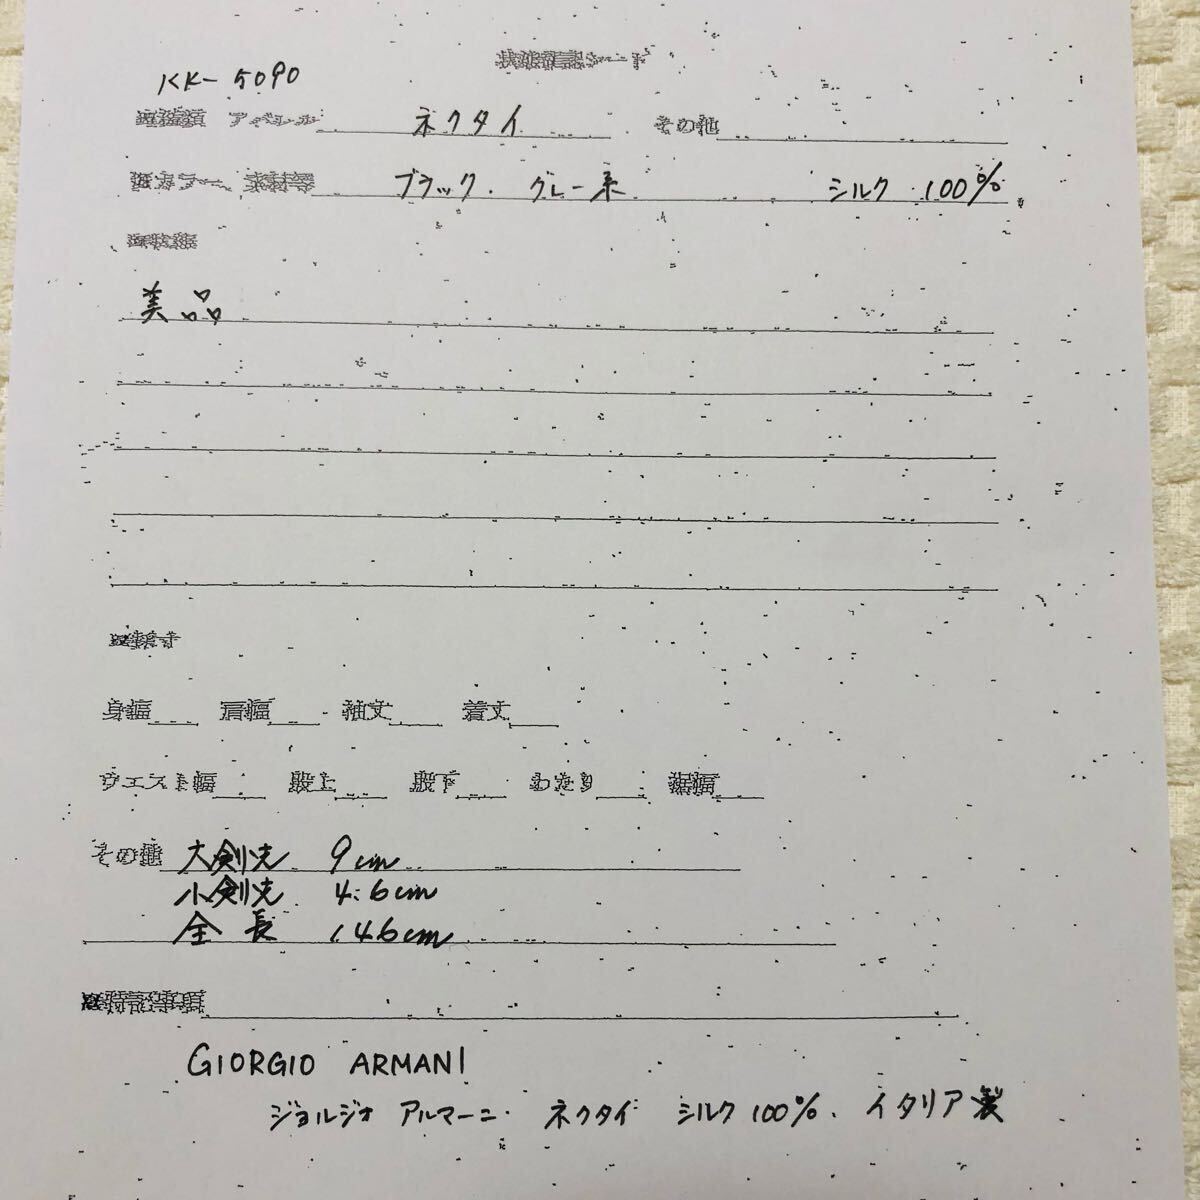 KK-5090
アパレル ネクタイ その他
カラー、素材等 ブラック・グレー系 シルク 100%
美品
身幅 肩幅 袖丈 着丈
ウエスト幅 股上 股下 わたり 裾幅
その他 大剣先 9cm
小剣先 4.6cm
全長 146cm
特記事項
GIORGIO ARMANI
ジョルジオ アルマーニ・ ネクタイ シルク 100%. イタリア製